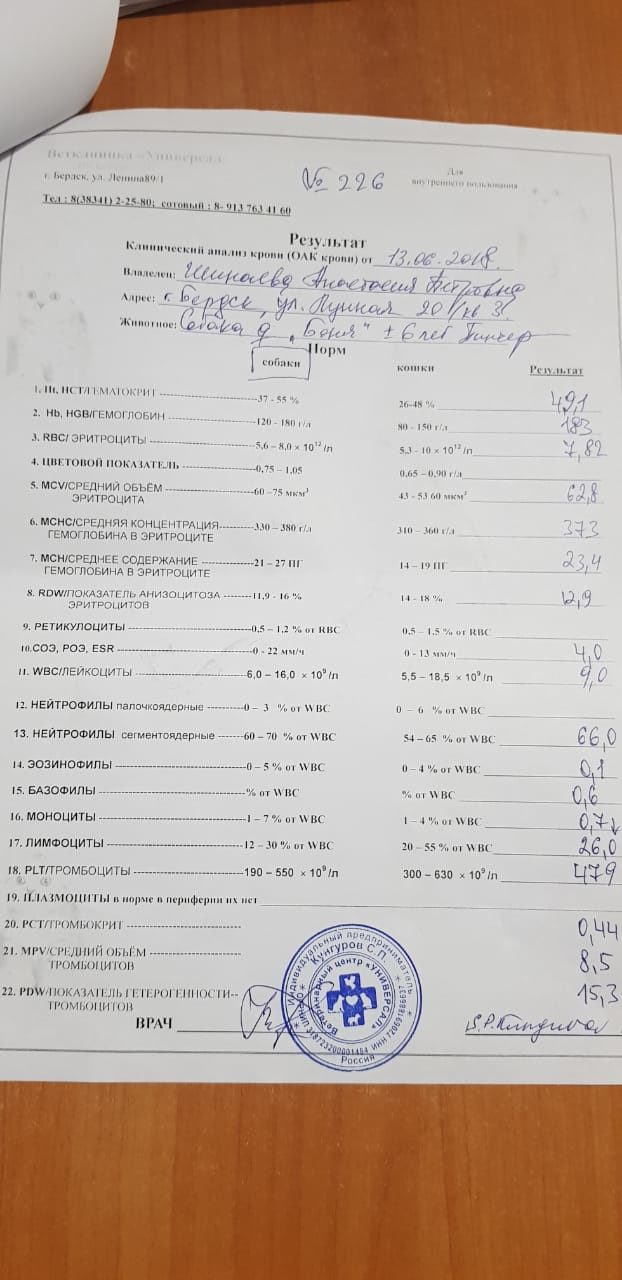 Ветклиника «Универсал»
г. Бердск, ул. Ленина89/1
Тел : 8(38341) 2-25-80; сотовый : 8- 913 763 41 60
№ 226
Для
внутреннего пользования
Результат
Клинический анализ крови (ОАК крови) от 13.06.2018.
Владелец: Анастасия Петровна
Адрес: г. Бердск, ул. 20
Животное: Собака д "Боня" ± 6 лет Пинчер
Норм
собаки кошки Результат
1. Ht, HCT/ГЕМАТОКРИТ 37 - 55 % 26-48 % 49,1
2. Hb, HGB/ГЕМОГЛОБИН 120 - 180 г/л 80 - 150 г/л 183
3. RBC/ ЭРИТРОЦИТЫ 5,6 – 8,0 × 10¹²/л 5,3 - 10 × 10¹²/л 7,82
4. ЦВЕТОВОЙ ПОКАЗАТЕЛЬ 0,75 – 1,05 0,65 –0,90 г/л
5. MCV/СРЕДНИЙ ОБЪЁМ 60 –75 мкм³ 43 - 53 60 мкм³ 62,8
ЭРИТРОЦИТА
6. MCHC/СРЕДНЯЯ КОНЦЕНТРАЦИЯ 330 – 380 г/л 310 – 360 г/л 373
ГЕМОГЛОБИНА В ЭРИТРОЦИТЕ
7. MCH/СРЕДНЕЕ СОДЕРЖАНИЕ 21 – 27 ПГ 14 – 19 ПГ 23,4
ГЕМОГЛОБИНА В ЭРИТРОЦИТЕ
8. RDW/ПОКАЗАТЕЛЬ АНИЗОЦИТОЗА 11,9 - 16 % 14 - 18 % 12,9
ЭРИТРОЦИТОВ
9. РЕТИКУЛОЦИТЫ 0,5 – 1,2 % от RBC 0,5 – 1,5 % от RBC
10.СОЭ, РОЭ, ESR 0 - 22 мм/ч 0 - 13 мм/ч 4,0
11. WBC/ЛЕЙКОЦИТЫ 6,0 – 16,0 × 10⁹/л 5,5 – 18,5 × 10⁹/л 9,0
12. НЕЙТРОФИЛЫ палочкоядерные 0 – 3 % от WBC 0 – 6 % от WBC
13. НЕЙТРОФИЛЫ сегментоядерные 60 – 70 % от WBC 54 – 65 % от WBC 66,0
14. ЭОЗИНОФИЛЫ 0 – 5 % от WBC 0 – 4 % от WBC 0,1
15. БАЗОФИЛЫ % от WBC % от WBC 0,6
16. МОНОЦИТЫ 1 – 7 % от WBC 1 – 4 % от WBC 0,7↓
17. ЛИМФОЦИТЫ 12 – 30 % от WBC 20 – 55 % от WBC 26,0
18. PLT/ТРОМБОЦИТЫ 190 – 550 × 10⁹/л 300 – 630 × 10⁹/л 479
19. ПЛАЗМОЦИТЫ в норме в периферии их нет
20. PCT/ТРОМБОКРИТ 0,44
21. MPV/СРЕДНИЙ ОБЪЁМ 8,5
ТРОМБОЦИТОВ
22. PDW/ПОКАЗАТЕЛЬ ГЕТЕРОГЕННОСТИ-- 15,3
ТРОМБОЦИТОВ
ВРАЧ
Индивидуальный предприниматель
Кунгуров С.П.
Ветеринарный центр «УНИВЕРСАЛ»
Россия